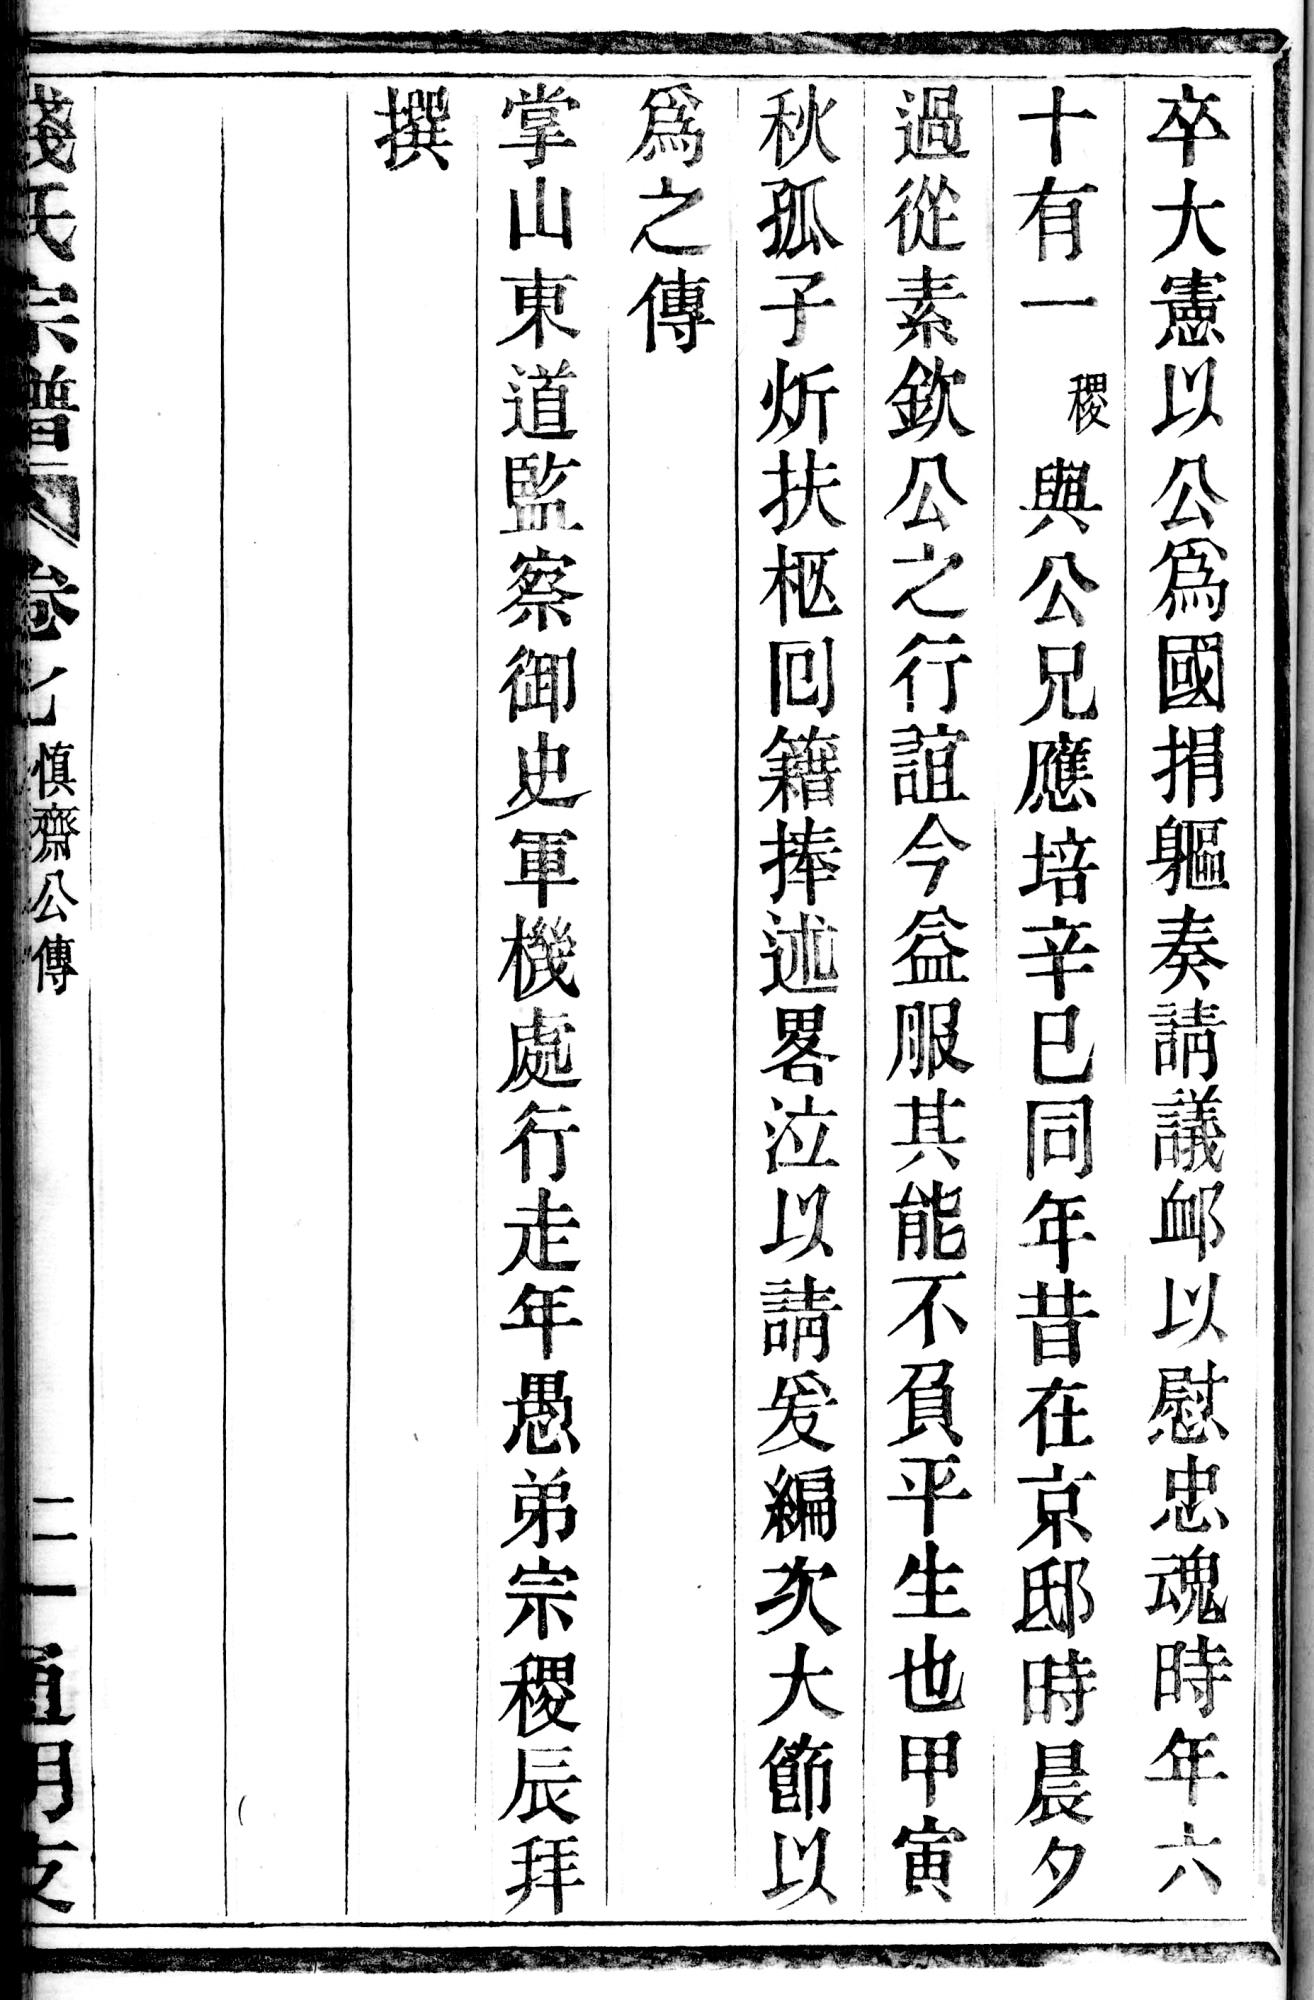 卒大憲以公爲國捐軀奏請議卹以慰忠魂時年六
十有一稷與公兄應培辛巳同年昔在京邸時晨夕
過從素欽公之行誼今益服其能不負平生也甲寅
秋孤子炘扶柩回籍捧述畧泣以請爰編次大節以
爲之傳
掌山東道監察御史軍機處行走年愚弟宗稷辰拜
撰
錢氏宗譜 卷七 慎齋公傳 二 通明支